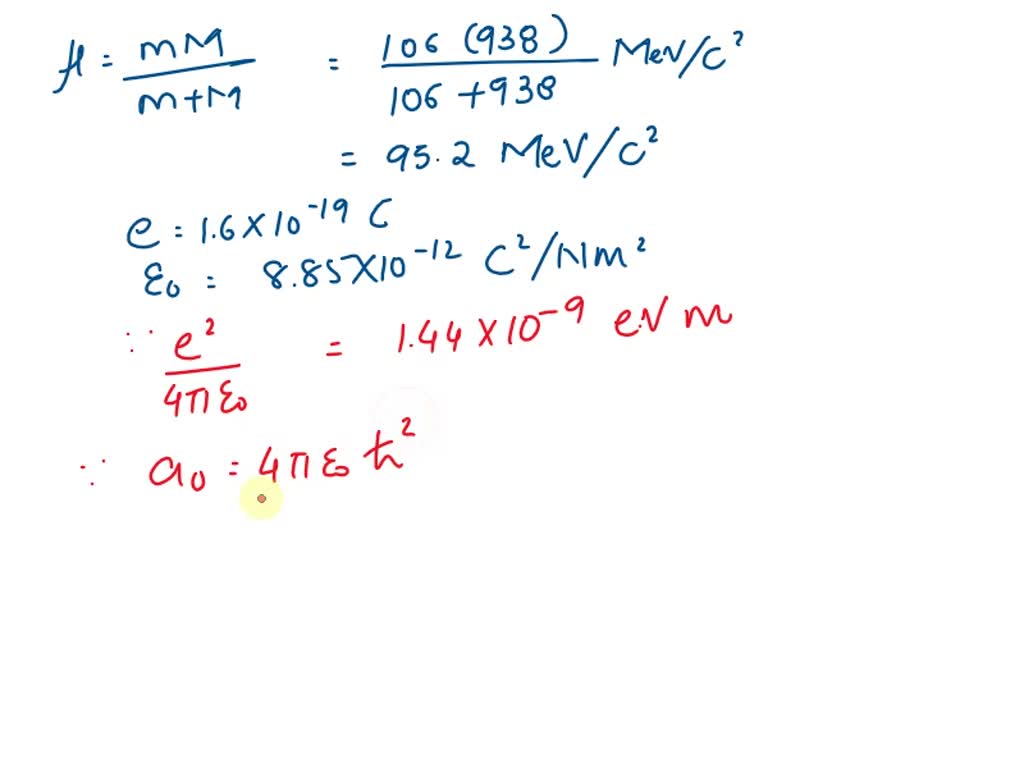 μ = mM / m+M = 106 (938) / 106 + 938 MeV/c²
= 95.2 MeV/c²
e = 1.6 × 10⁻¹⁹ C
ε₀ = 8.85 × 10⁻¹² C²/Nm²
∵ e² / 4πε₀ = 1.44 × 10⁻⁹ eV m
∵ a₀ = 4πε₀ ħ²